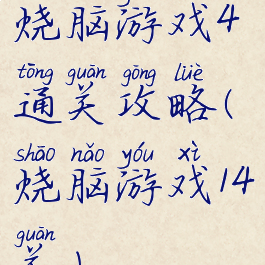 烧脑游戏4
tōng guān gōng lüè
通关攻略(
shāo nǎo yóu xì
烧脑游戏14
guān
关)